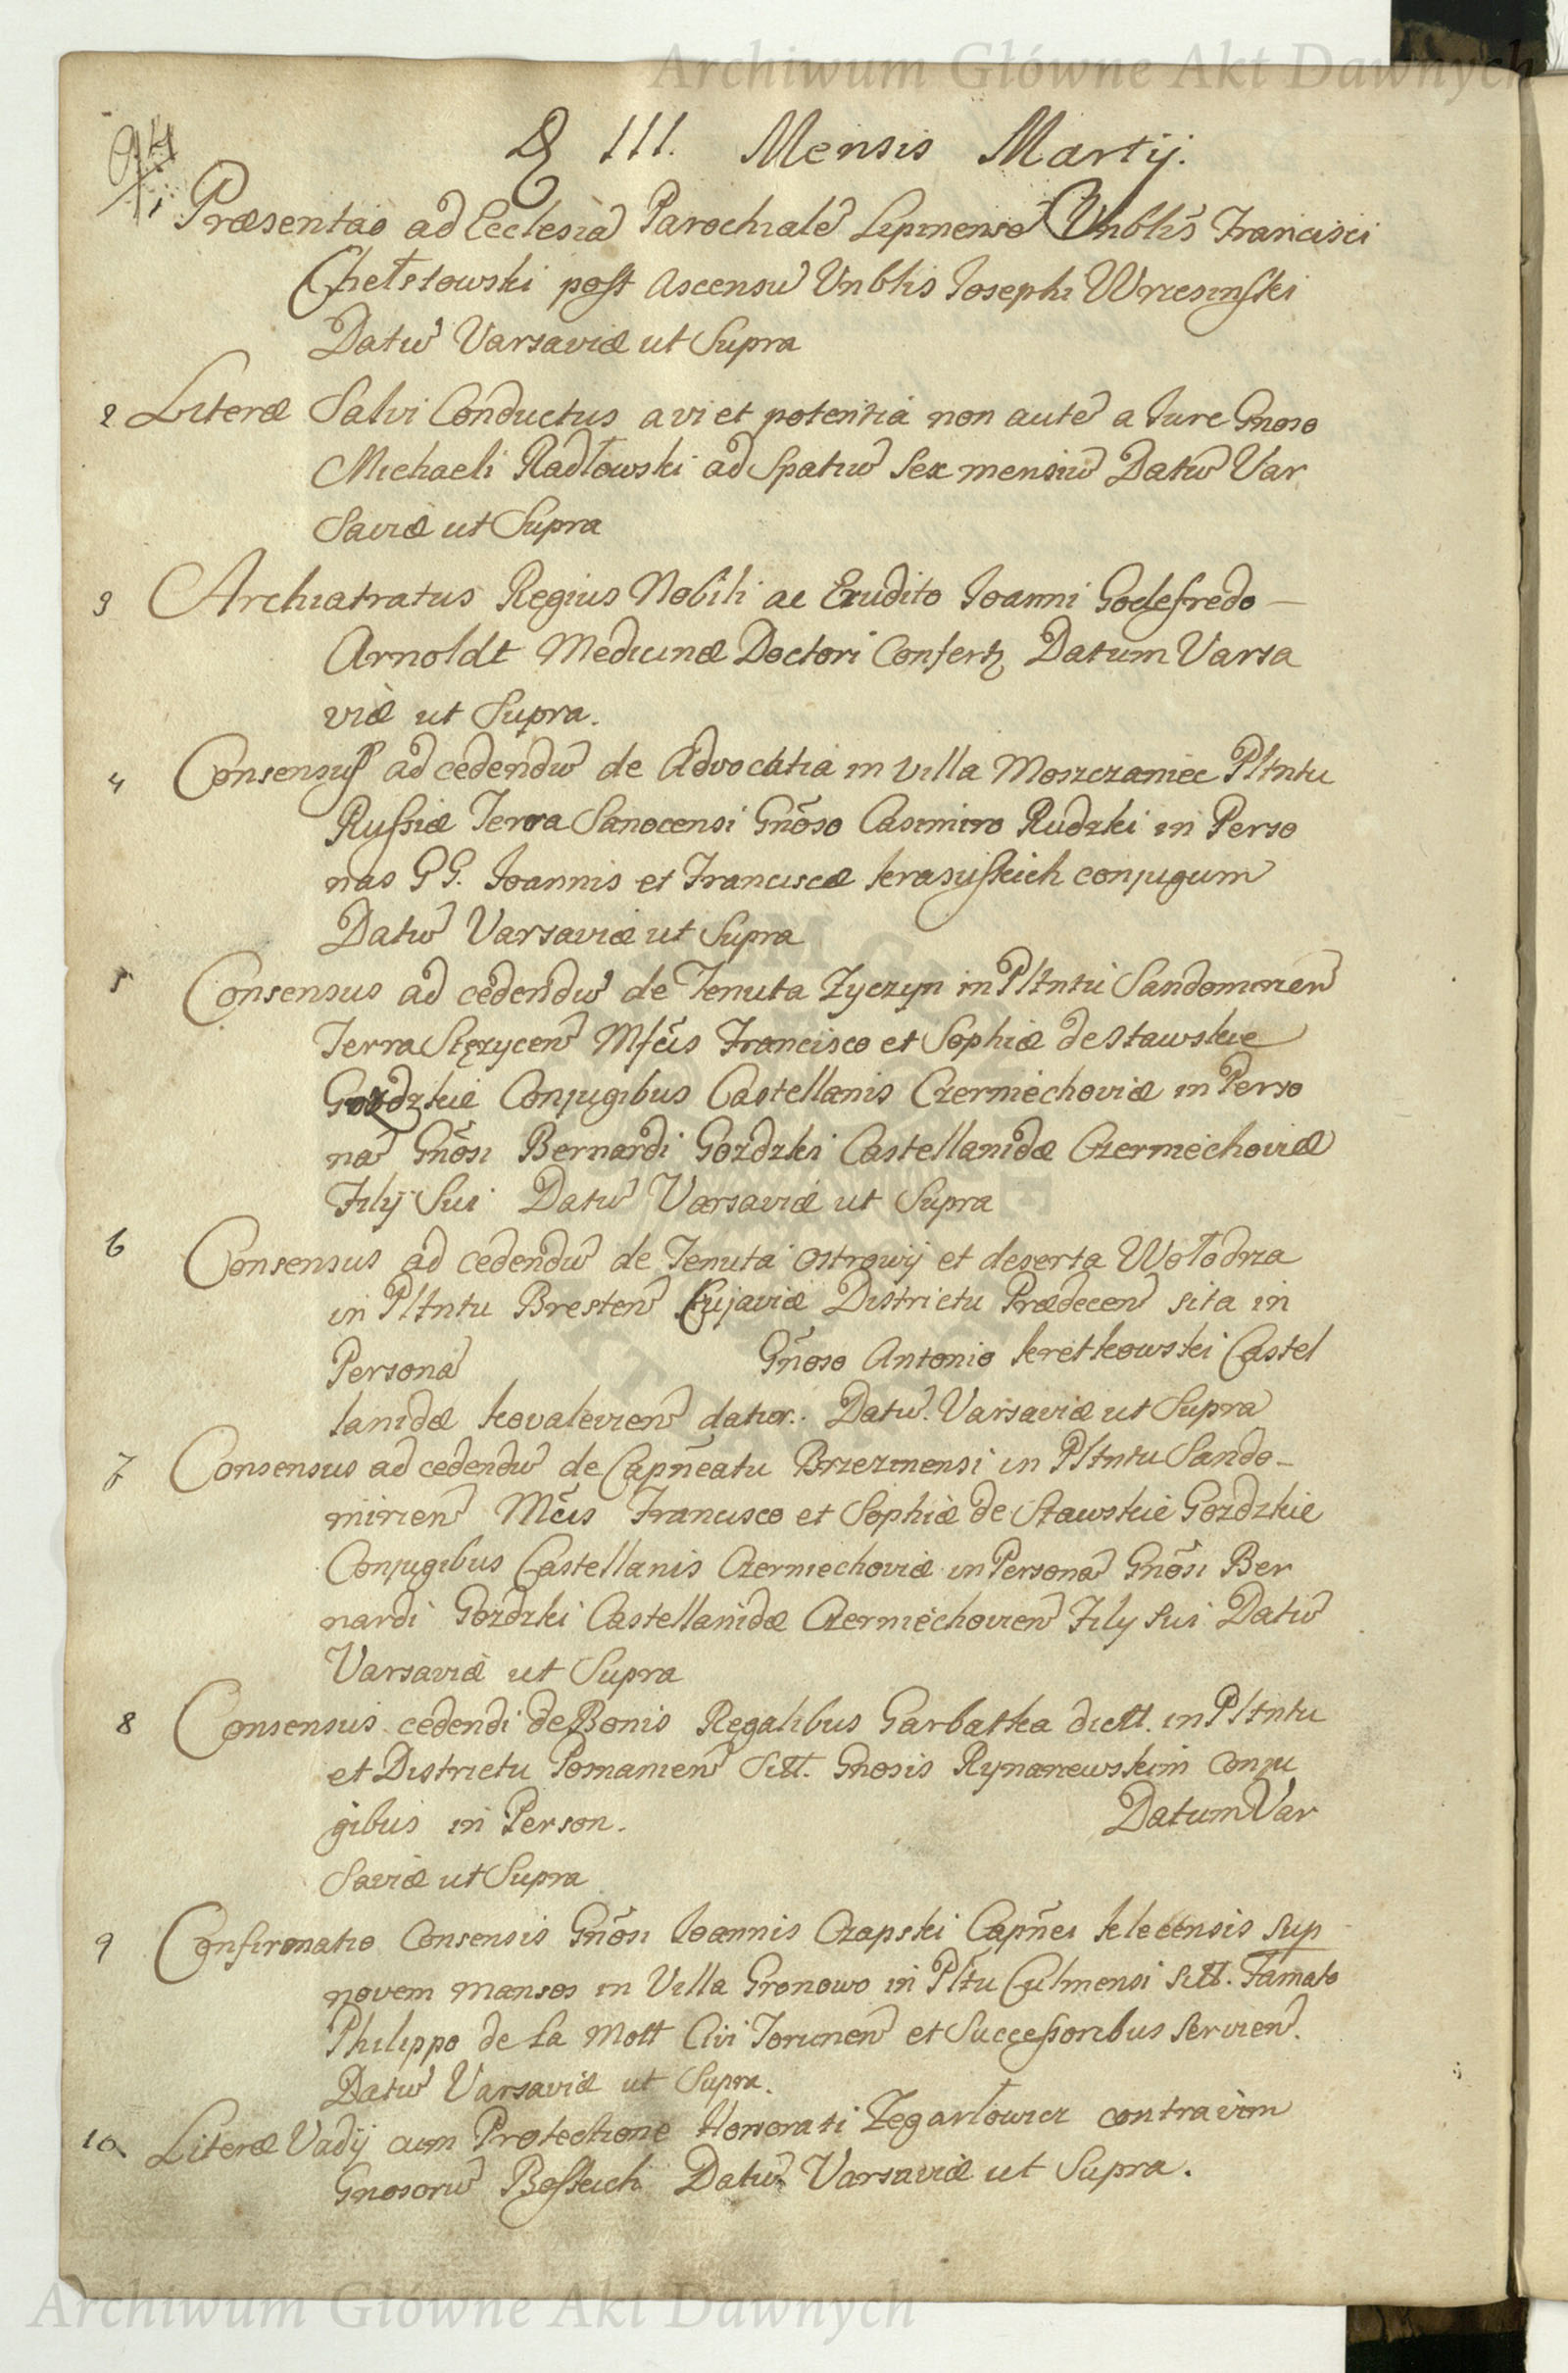 Archiwum Główne Akt Dawnych
94
D III. Mensis Martij.
1 Præsentao ad Ecclesiã Parochialẽ Lipinensẽ Vnblis Francisci
Chełstowski post ascensũ Vnblis Josephi Wrzesinski
Datũ Varsaviæ ut Supra
2 Literæ Salvi Conductus a vi et potentia non autẽ a Jure Gnoso
Michaeli Radłowski ad Spatiũ Sex mensiũ Datũ Var
Saviæ ut Supra
3 Archiatratus Regius Nobili ac Erudito Joanni Godefredo —
Arnoldt Medicinæ Doctori Confertz Datum Varsa
viæ ut Supra.
4 Consensus ad cedendũ de Advocatia in villa Moszczaniec Pltntu
Russiæ Terra Sanocensi Gnõso Casimiro Rudzki in Perso
nas GG. Joannis et Franciscæ krasuskich conjugum
Datũ Varsaviæ ut Supra
5 Consensus ad cedendũ de Tenuta Zyczyn in Pltntu Sandomirien
Terra Stęzycen Mfcis Francisco et Sophiæ de Stawskie
Gozdzkie Conjugibus Castellanis Czerniechoviæ in Perso
nã Gnõsi Bernardi Gozdzki Castellanidæ Czerniechoviæ
Filij Sui Datũ Varsaviæ ut Supra
6 Consensus ad cedendũ de Tenuta Ostrowij et deserta Wołodrza
in Pltntu Bresten Cujaviæ Districtu Prædecen sita in
Personã Gñoso Antonio kretkowski Castel
lanidæ kovalevien datur. Datũ. Varsaviæ ut Supra
7 Consensus ad cedendũ de Capñeatu Brzezinensi in Pltntu Sando-
mirien Mcis Francisco et Sophiæ de Stawskie Gozdzkie
Conjugibus Castellanis Czerniechoviæ in Personã Gnõsi Ber
nardi Gozdzki Castellanidæ Czerniechovien Filij Sui Datũ
Varsaviæ ut Supra
8 Consensus cedendi de Bonis Regalibus Garbatka dictt. in Pltntu
et Districtu Posnanien Sitt. Gnosis Rynarzewskim Conju
gibus in Person. Datum Var
Saviæ ut Supra
9 Confirmatio Consensis Gnõsi Joannis Czapski Capñei klecensis sup
novem mansos in Villa Gronowo in Pltu Culmensi Sitt. Famato
Philippo de La Mott Civi Torunen et Successoribus Servien.
Datũ Varsaviæ ut Supra.
10 Literæ Vadij cum Protectione Honorati Zegartowicz contra vim
Gnosorũ Beskich Datũ Varsaviæ ut Supra.
Archiwum Główne Akt Dawnych